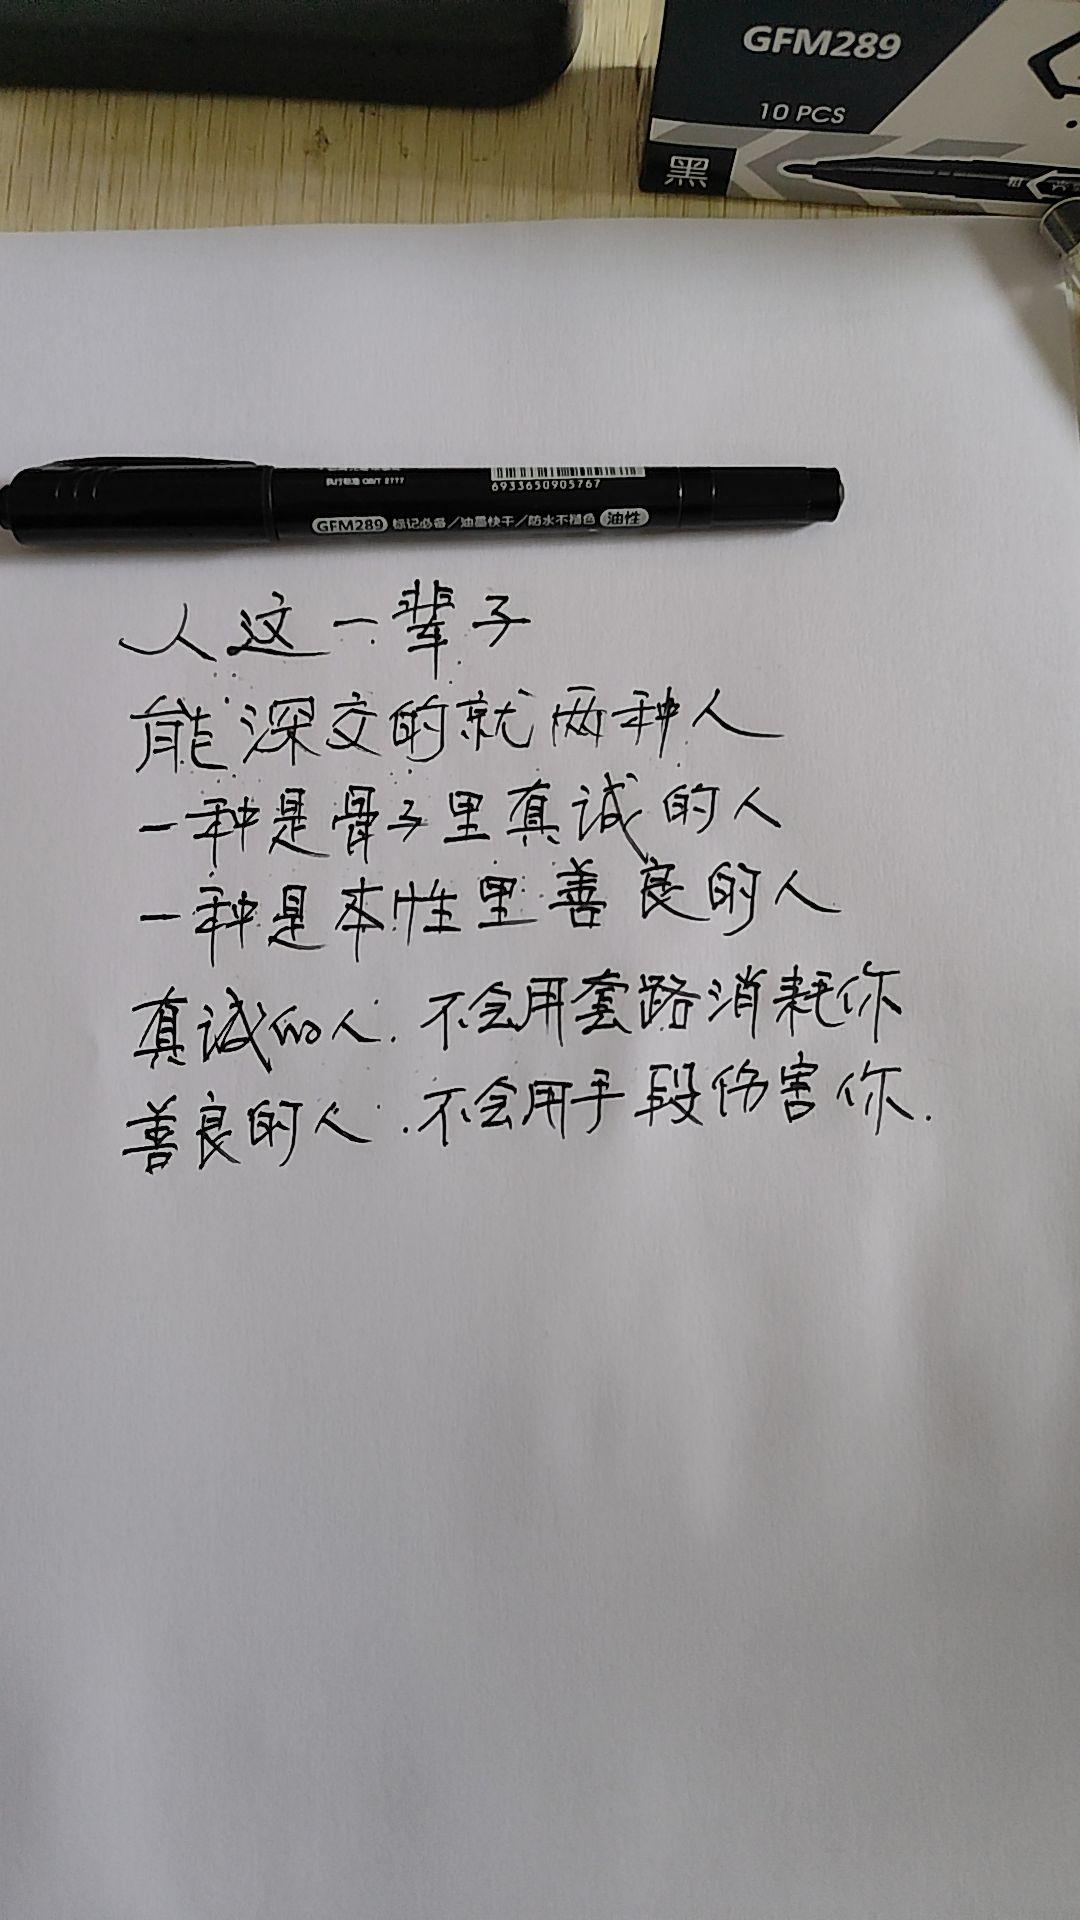 GFM289
10 PCS
黑
执行标准 QB/T 2777
6933650905767
GFM289 标记必备/油墨快干/防水不褪色 油性
人这一辈子
能深交的就两种人
一种是骨子里真诚的人
一种是本性里善良的人
真诚的人.不会用套路消耗你
善良的人.不会用手段伤害你.